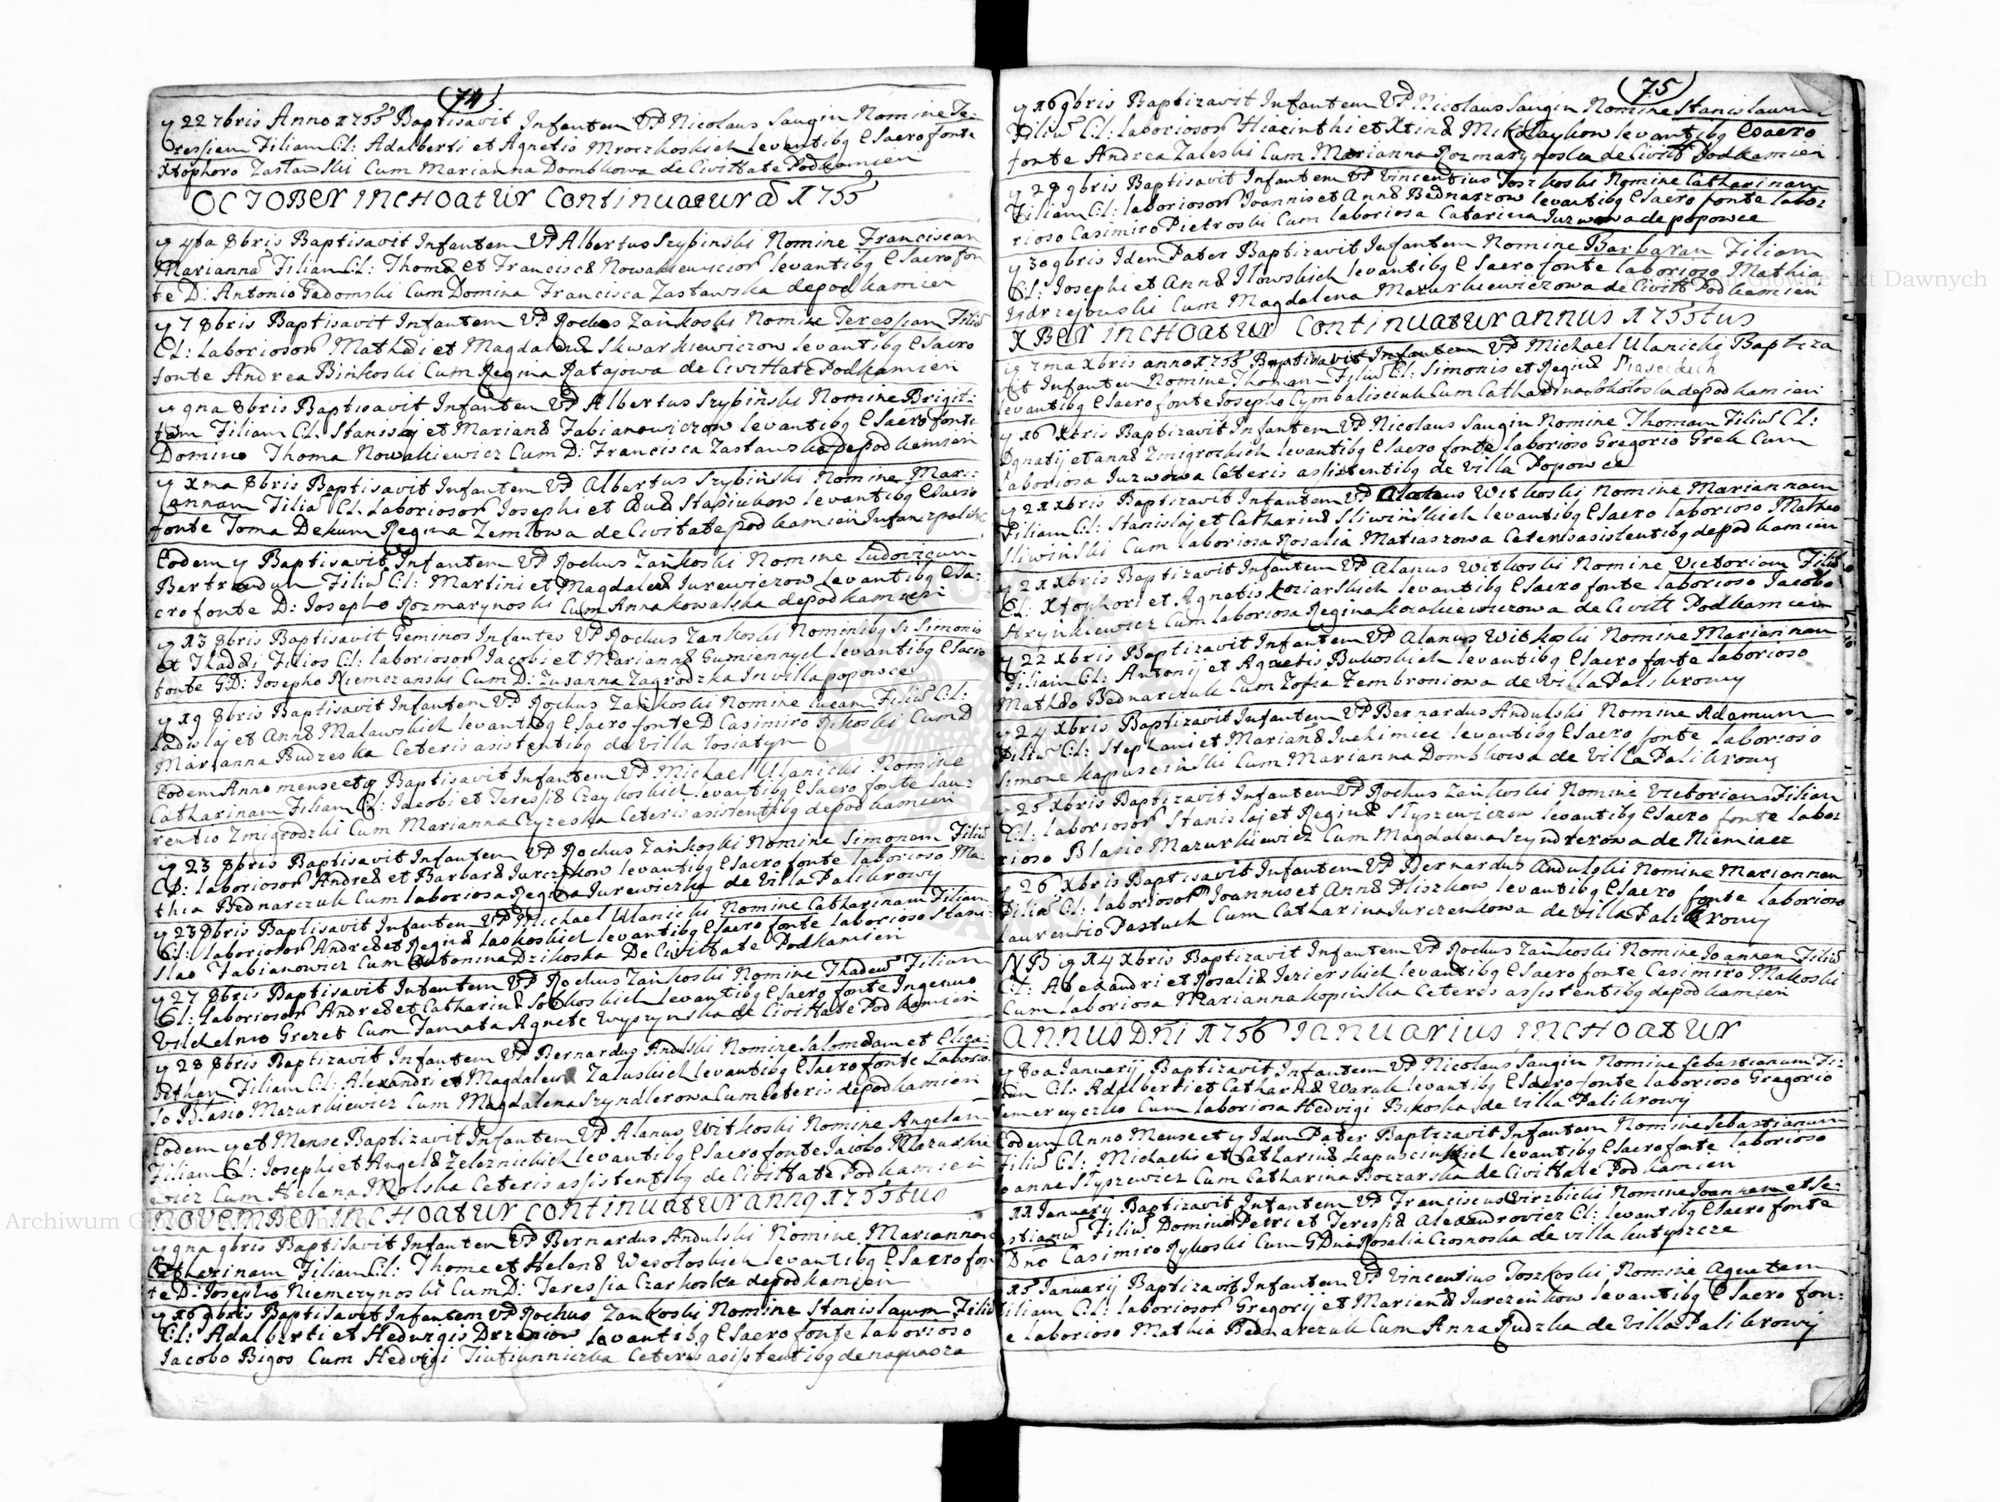 74
y 22 7bris Anno 1755 Baptisavit Infantem VP Nicolaus Saugin Nomine Te:
ressiam Filiam Cl: Adalberti et Agnetis Mroczkoskich levantibq E Sacro fonte
Xtophoro Zastawski Cum Marianna Dombkowa de Civittate Podkamien
OCTOBER INCHOATUR Continuatur A 1755
y 4ta 8bris Baptisavit Infantem VP Albertus Szybinski Nomine Franciscam
Mariannā Filiam Cl: Thomæ et Franciscæ Nowakiewiczow levantibq E Sacro fon
te D: Antonio Gadomski Cum Domina Francisca Zastawska de podkamien
y 7 8bris Baptisavit Infantem VP Rochus Zańkoski Nomine Teressiam Filiā
Cl: laboriosor Mathæi et Magdalenæ Skwarkiewiczow levantibq E Sacro
fonte Andrea Binkoski Cum Regina Ratajowa de Civittate Podkamien
y 9na 8bris Baptisavit Infantem VP Albertus Szybiński Nomine Brigit:
tam Filiam Cl. Stanislaj et Marianæ Fabianowiczow levantibq E Sacro fonte
Domino Thoma Nowakiewicz Cum D: Francisca Zastawska de podkamien
y Xma 8bris Baptisavit Infantem VP Albertus Szybiński Nomine Mari:
annam Filiā Cl. Laboriosor Josephi et Evæ Stasiukow levantibq E Sacro
fonte Toma Dekun Regina Zemlowa de Civitate podkamień
Eodem y Baptisavit Infantem VP Rochus Zańkoski Nomine Ludovicum
Bertrandum Filiū Cl: Martini et Magdalenæ Jurewiczow levantibq E Sa:
cro fonte D: Josepho Rozmarynoski Cum Anna Kowalska de podkamień
y 13 8bris Baptisavit Geminos Infantes VP Rochus Zankoski Nominibq SS Simonis
et Thadæi Filios Cl: laboriosor Jacobi et Mariannæ Gumiennych levantibq E Sacro
fonte GD: Josepho Niemczanski Cum D: Zusanna Zagrodzka In villa popowce
y 19 8bris Baptisavit Infantem VP Rochus Zańkoski Nomine Lucam Filiū Cl:
Ladislaj et Annæ Malawskich levantibq E Sacro fonte D Casimiro Rikoski Cum D
Marianna Rudzeska Ceteris asistentibq de villa Tosiatyn
Eodem Anno mense et y Baptisavit Infantem VP Michael Ulanicki Nomine
Catharinam Filiam Cl: Jacobi et Teressiæ Czaykoskich levantibq E Sacro fonte Lau:
rentio Zmigrodzki Cum Marianna Czyzeska Ceteris asistentibq de podkamien
y 23 8bris Baptisavit Infantem VP Rochus Zańkoski Nomine Simonam Filiū
Cl: laboriosor Andreæ et Barbaræ Jurczykow levantibq E Sacro fonte laborioso Ma:
thia Bednarczuk Cum laboriosa Regina Jurewiczka de Villa Palikrowy
y 23 8bris Baptisavit Infantem VP Michael Ulanicki Nomine Catharinam Filiam
Cl: laboriosor Andreæ et Reginæ Laskoskich levantibq E Sacro fonte laborioso Stani:
slao Fabianowicz Cum Antonina Dzikoska De Civittate Podkamien
y 27 8bris Baptisavit Infantem VP Rochus Zańkoski Nomine Thadeū Filium
Cl: laboriosor Andreæ et Catharinæ Sokoskich levantibq E Sacro fonte Ingenuo
Vilchelmo Grezet Cum Famata Agnete Wyrzynska de Civittate Podkamien
y 28 8bris Baptizavit Infantem VP Bernardus Andulski Nomine Salomæam et Eliza:
bitham Filiam Cl: Alexandri et Magdalenæ Zaluskich levantibq E Sacro fonte Laborio:
so Blasio Mazurkiewicz Cum Magdalena Szyndlerowa Cum Ceteris de podkamien
Eodem y et Mense Baptizavit Infantem VP Alanus Witkoski Nomine Angelam
Filiam Cl: Josephi et Angelæ Zeleznickich levantibq E Sacro fonte Jacobo Mazurkie
wicz Cum Helena Smolska Ceteris assistentibq de Civittate Podkamien
NOVEMBER INCHOATUR CONTINUATUR annq 1755tus
y 9na 9bris Baptisavit Infantem VP Bernardus Andulski Nomine Mariannam
Catharinam Filiam Cl: Thome et Helenæ Wesołoskich levantibq E Sacro fon
te D: Josepho Niemczynoski Cum D: Teressia Czarkoska de podkamien
y 16 9bris Baptisavit Infantem VP Rochus Zankoski Nomine Stanislawm Filiū
Cl: Adalberti et Hedwigis Drzeniow levantibq E Sacro fonte laborioso
Jacobo Bigos Cum Hedvigi Tiutiunniczka Ceteris asisstentibq de naquasza
75
y 16 9bris Baptizavit Infantem VP Nicolaus Saugin Nomine Stanislawm
Filiū Cl: laboriosor Hiacinthi et Xtinæ Mikolaykow levantibq E Sacro
fonte Andrea Zaleski Cum Marianna Rozmarynoska de Civitt Podkamien
y 28 9bris Baptisavit Infantem VP Vincentius Toszkoski Nomine Catharinam
Filiam Cl: laboriosor Joannis et Annæ Bednarzow levantibq E Sacro fonte labo:
rioso Casimiro Pietroski Cum laboriosa Catarina Jurwowa de popowce
y 30 9bris Idem Pater Baptizavit Infantem Nomine Barbaram Filiam
Cl: Josephi et Annæ Ilowskich levantibq E Sacro fonte laborioso Mathia
Jędrzejowski Cum Magdalena Mazurkiewiczowa de Civitt Podkamien
XBER INCHOATUR CONTINUATUR ANNUS 1755tus
y 7ma Xbris anno 1755 Baptisavit Infantem VP Michael Ulanicki Baptiza
vit Infantem Nomine Thoman Filiū Cl: Simonis et Reginæ Piaseckich
levantibq E Sacro fonte Josepho Cymbaliscziuk Cum Catharina Sokołoska de podkamien
y 16 Xbris Baptizavit Infantem VP Nicolaus Saugin Nomine Thomam Filiū Cl:
Ignatij et annæ Zmigrockich levantibq E Sacro fonte laborioso Gregorio Grek Cum
laboriosa Jurwowa Ceteris assistentibq de villa Popowce
y 21 Xbris Baptizavit Infantem VP Alanus Witkoski Nomine Mariannam
Filiam Cl: Stanislaj et Catharinæ Sliwińskich levantibq E Sacro laborioso Matheo
Sliwiński Cum laboriosa Rosalia Matiaszowa Ceteris asistentibq de podkamien
y 21 Xbris Baptizavit Infantem VP Alanus Witkoski Nomine Victoriam Filiā
Cl: Xtophori et Agnetis Koziarskich levantibq E Sacro fonte laborioso Jacobo
Hrynkiewicz Cum laboriosa Regina Kozakiewiczowa de Civitt Podkamien
y 22 Xbris Baptizavit Infantem VP Alanus Witkoski Nomine Mariannam
Filiam Cl: Antonij et Agnetis Bukoskich levantibq E Sacro fonte laborioso
Mathæo Bednarczuk Cum Zofia Zembroniowa de villa Palikrowy
y 24 Xbris Baptizavit Infantem VP Bernardus Andulski Nomine Adamum
Filiū Cl: Stephani et Marianæ Juchimiec levantibq E Sacro fonte laborioso
Simone Kapusciński Cum Marianna Dombkowa de villa Palikrowy
y 25 Xbris Baptizavit Infantem VP Rochus Zańkoski Nomine Victoriam Filiam
Cl: laboriosor Stanislaj et Reginæ Slyszewiczow levantibq E Sacro fonte labo:
rioso Blasio Mazurkiewicz Cum Magdalena Szyndrerowa de Niemiacz
y 26 Xbris Baptisavit Infantem VP Bernardus Andulski Nomine Mariannam
Filiā Cl: laboriosor Joannis et Annæ Pliszkow levantibq E Sacro fonte laborioso
Laurentio Pastuch Cum Catharina Jurczenkowa de villa Palikrowy
NB y 14 Xbris Baptisavit Infantem VP Rochus Zańkoski Nomine Joannem Filiū
Cl: Alexandri et Rosaliæ Jezierskich levantibq E Sacro fonte Casimiro Makoski
Cum laboriosa Marianna Kopińska Ceteris assistentibq de podkamien
ANNUS DNI 1756 IANUARIUS INCHOATUR
y 8va Januarij Baptizavit Infantem VP Nicolaus Saugin Nomine Sebastianum Fi:
lium Cl: Adalberti et Catharinæ Waruk levantibq E Sacro fonte laborioso Gregorio
Semeruczko Cum laboriosa Hedvigi Bikoska de villa Palikrowy
Eodem Anno Mense et y Idem Pater Baptizavit Infantem Nomine Sebastianum
Filiū Cl: Michaelis et Catharinæ Kapuscinskich levantibq E Sacro fonte laborioso
Joanne Slyszewicz Cum Catharina Boczarska de Civittate Podkamien
11 Januarij Baptizavit Infantem VP Franciscus Wirzbicki Nomine Joannem et Se:
bastianū Filiū Dominor Petri et Teressiæ Alexandrovicz Cl: levantibq E Sacro fonte
Dno Casimiro Rykoski Cum GDna Rosalia Czosnoska de villa hutyszcze
15 Januarij Baptizavit Infantem VP Vincentius Toszkoski Nomine Agnetem
Filiam Cl: laboriosor Gregorij et Marianæ Jurczenkow levantibq E Sacro fon:
te laborioso Mathia Bednarczuk Cum Anna Rudzka de villa Palikrowy
Archiwum Główne Akt Dawnych